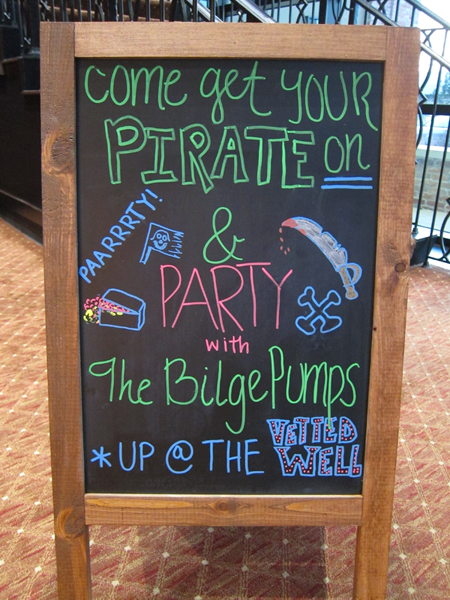 come get YOUR
PIRATE on
PAARRRTY!
&
PARTY
with
The Bilge Pumps
*UP @ THE VETTED WELL